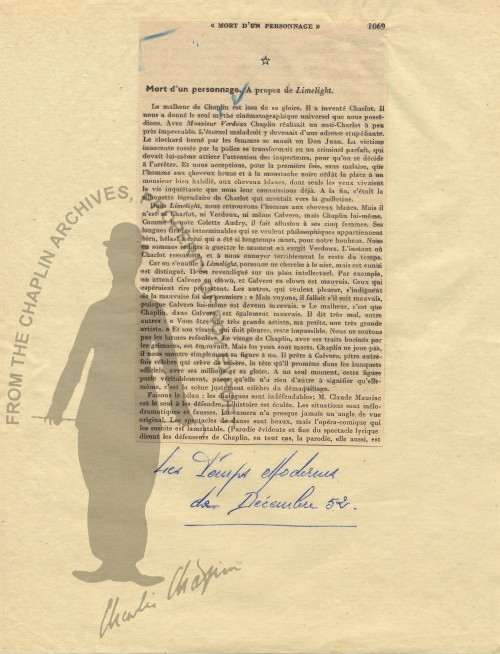 « MORT D'UN PERSONNAGE » 1069
Mort d'un personnage. A propos de Limelight.
Le malheur de Chaplin est issu de sa gloire. Il a inventé Charlot. Il
nous a donné le seul mythe cinématographique universel que nous possé-
dions. Avec Monsieur Verdoux Chaplin réalisait un anti-Charlot à peu
près impeccable. L'éternel maladroit y devenait d'une adresse stupéfiante.
Le clochard berné par les femmes se muait en Don Juan. La victime
innocente rossée par la police se transformait en un criminel parfait, qui
devait lui-même attirer l'attention des inspecteurs, pour qu'on se décide
à l'arrêter. Et nous acceptions, pour la première fois, sans malaise, que
l'homme aux cheveux bruns et à la moustache noire cédât la place à un
monsieur bien habillé, aux cheveux blancs, dont seuls les yeux vivaient
la vie inquiétante que nous leur connaissions déjà. A la fin, c'était la
silhouette légendaire de Charlot qui montait vers la guillotine.
Dans Limelight, nous retrouvons l'homme aux cheveux blancs. Mais il
n'est ni Charlot, ni Verdoux, ni même Calvero, mais Chaplin lui-même.
Comme le note Colette Audry, il fait allusion à ses cinq femmes. Ses
longues tirades interminables qui se veulent philosophiques appartiennent
bien, hélas, à celui qui a été si longtemps muet, pour notre bonheur. Nous
en sommes réduits à guetter le moment où surgit Verdoux. L'instant où
Charlot ressuscite, et à nous ennuyer terriblement le reste du temps.
Car on s'ennuie à Limelight, personne ne cherche à le nier, mais cet ennui
est distingué. Il est revendiqué sur un plan intellectuel. Par exemple,
on attend Calvero en clown, et Calvero en clown est mauvais. Ceux qui
espéraient rire protestent. Les autres, qui veulent pleurer, s'indignent
de la mauvaise foi des premiers : « Mais voyons, il fallait s'il soit mauvais,
puisque Calvero lui-même est devenu mauvais. » Le malheur, c'est que
Chaplin, dans Calvero, est également mauvais. Il dit très mal, entre
autres : « Vous êtes une très grande artiste, ma petite, une très grande
artiste. » Et son visage, qui doit pleurer, reste impassible. Nous ne sentons
pas les larmes refoulées. Le visage de Chaplin, avec ses traits burinés par
les grimaces, est émouvant. Mais les yeux sont morts. Chaplin ne joue pas,
il nous montre simplement sa figure à nu. Il prête à Calvero, pitre autre-
fois célèbre qui crève de misère, la tête qu'il promène dans les banquets
officiels, avec ses millions et sa gloire. A un seul moment, cette figure
parle véritablement, parce qu'elle n'a rien d'autre à signifier qu'elle-
même, c'est la scène justement célèbre du démaquillage.
Faisons le bilan : les dialogues sont indéfendables; M. Claude Mauriac
est le seul à les défendre. L'histoire est éculée. Les situations sont mélo-
dramatiques et fausses. La caméra n'a presque jamais un angle de vue
original. Les spectacles de danse sont beaux, mais l'opéra-comique qui
les suscite est lamentable. (Parodie évidente et fine du spectacle lyrique
diront les défenseurs de Chaplin, en tout cas, la parodie, elle aussi, est
Les Temps Modernes
de Décembre 52.
FROM THE CHAPLIN ARCHIVES,
Charlie Chaplin